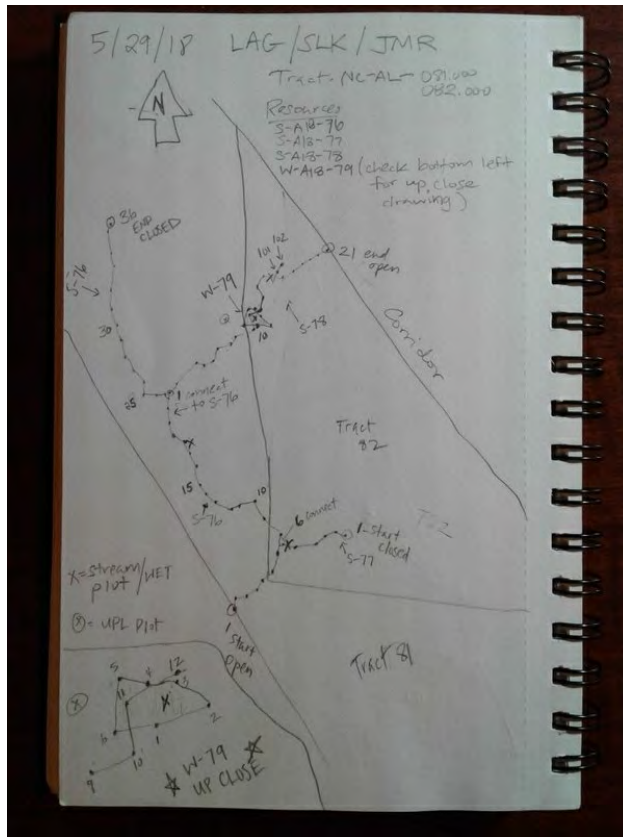 5/29/18 LAG/SLK/JMR
Tract-NC-AL-081.000
082.000
N
Resources
S-A18-76
S-A18-77
S-A18-78
W-A18-79 (check bottom left
for up close
drawing)
36
END
CLOSED
101 102
21 end
open
S-76
W-79
30
10
S-78
Corridor
25
1 connect
to S-76
Tract
82
X
15
10
S-76
6 connect
X
1-start
closed
S-77
X=stream
plot/WET
ⓧ= UPL Plot
1
start
open
Tract 81
5 4 12
11 3
ⓧ X
6 1 2
9 10
☆ W-79 ☆
UP CLOSE